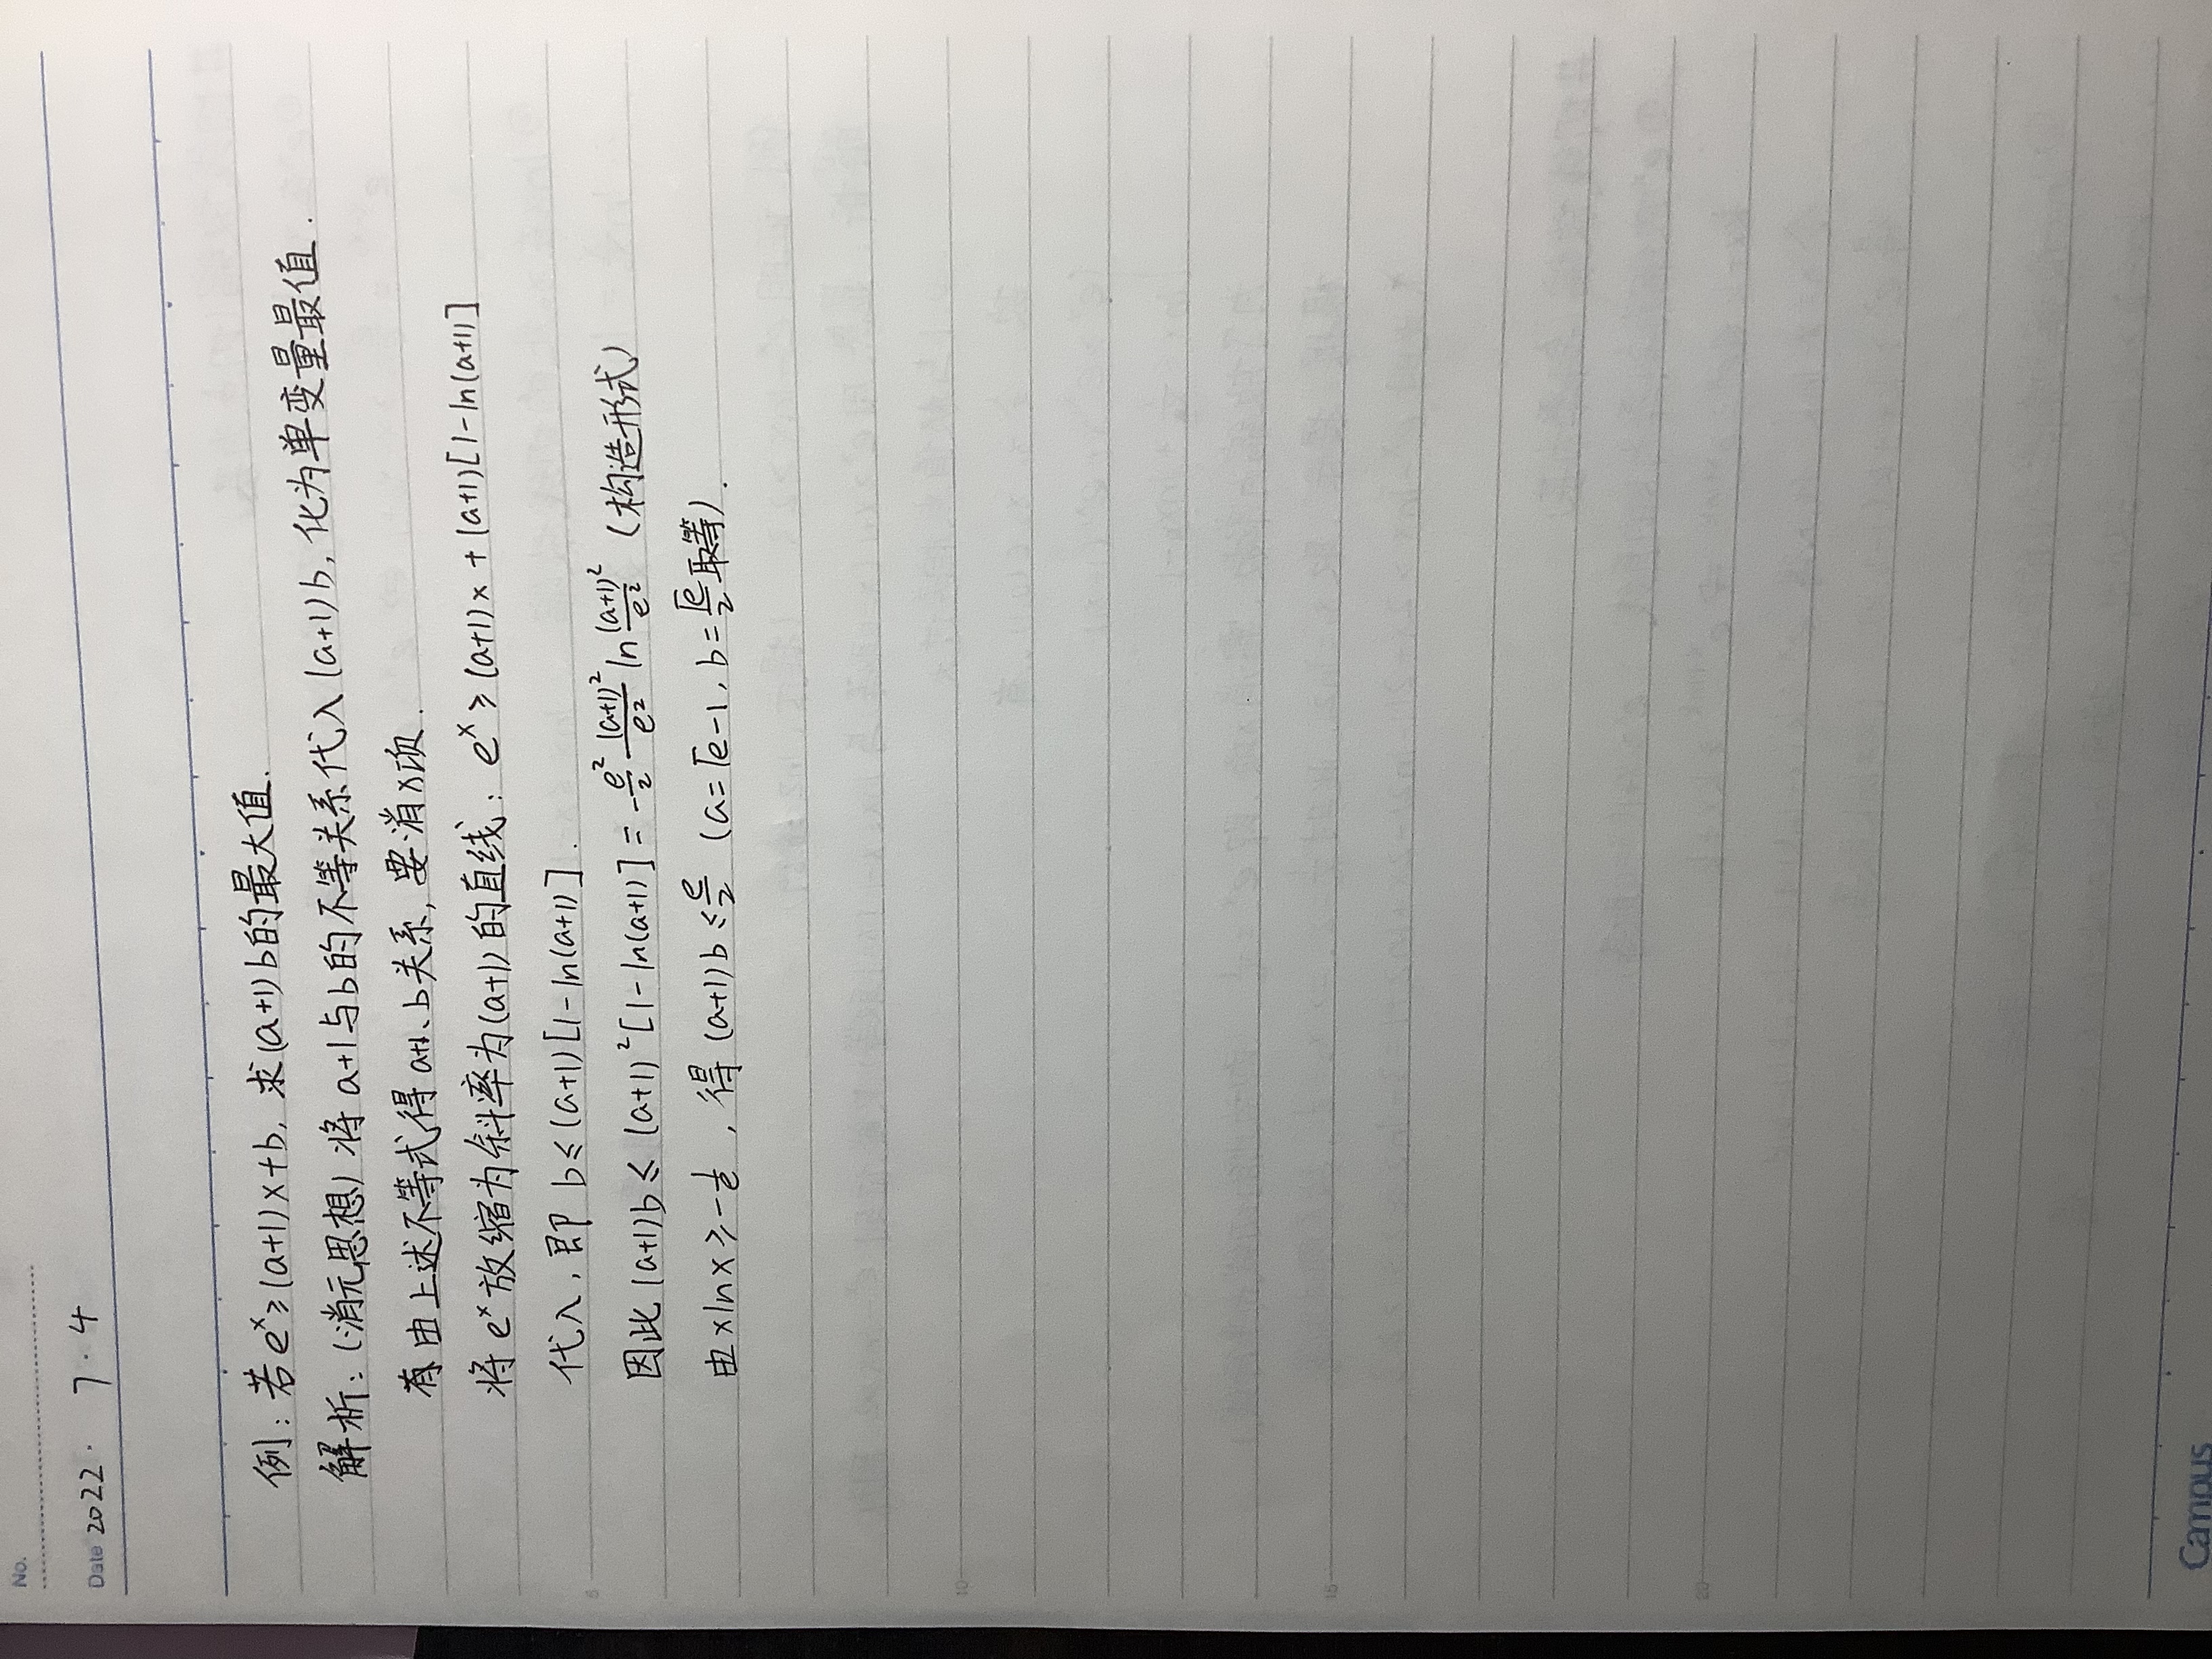 No.
Date 2022. 7. 4
例:若eˣ≥(a+1)x+b,求(a+1)b的最大值.
解析:(消元思想)将a+1与b的不等关系代入(a+1)b,化为单变量最值.
有由上述不等式得a+1、b关系,要消x项.
将eˣ放缩为斜率为(a+1)的直线:eˣ≥(a+1)x+(a+1)[1-ln(a+1)]
代入,即 b≤(a+1)[1-ln(a+1)].
5
因此(a+1)b≤(a+1)²[1-ln(a+1)]=-e²/2 (a+1)²/e² ln (a+1)²/e² (构造形式)
由xlnx≥-1/e,得(a+1)b≤e/2 (a=√e-1,b=√e/2取等).
10
15
20
Campus